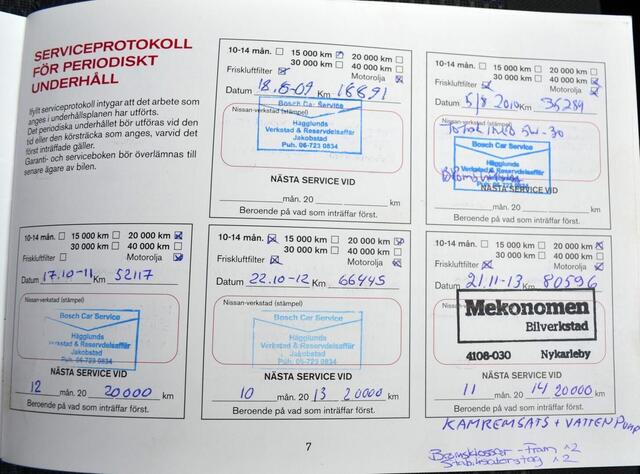 SERVICEPROTOKOLL
FÖR PERIODISKT
UNDERHÅLL
Ifyllt serviceprotokoll intygar att det arbete som
anges i underhållsplanen har utförts.
Det periodiska underhållet bör utföras vid den
tid eller den körsträcka som anges, varvid det
först inträffade gäller.
Garanti- och serviceboken bör överlämnas till
senare ägare av bilen.
10-14 mån. 15 000 km 20 000 km
30 000 km 40 000 km
Friskluftfilter Motorolja
Datum 18.6-09 Km 16891
Nissan-verkstad (stämpel)
Bosch Car Service
Hägglunds
Verkstad & Reservdelsaffär
Jakobstad
Puh. 06-723 0834
NÄSTA SERVICE VID
mån. 20 km
Beroende på vad som inträffar först.
10-14 mån. 15 000 km 20 000 km
30 000 km 40 000 km
Friskluftfilter Motorolja
Datum 5/8 2010 Km 35289
Nissan-verkstad (stämpel)
Total 5W-30
Bosch Car Service
Hägglunds
Verkstad & Reservdelsaffär
Jakobstad
Puh. 06-723 0834
NÄSTA SERVICE VID
mån. 20 km
Beroende på vad som inträffar först.
10-14 mån. 15 000 km 20 000 km
30 000 km 40 000 km
Friskluftfilter Motorolja
Datum 17.10-11 Km 52117
Nissan-verkstad (stämpel)
Bosch Car Service
Hägglunds
Verkstad & Reservdelsaffär
Jakobstad
Puh. 06-723 0834
NÄSTA SERVICE VID
12 mån. 20 20000 km
Beroende på vad som inträffar först.
10-14 mån. 15 000 km 20 000 km
30 000 km 40 000 km
Friskluftfilter Motorolja
Datum 22.10-12 Km 66445
Nissan-verkstad (stämpel)
Bosch Car Service
Hägglunds
Verkstad & Reservdelsaffär
Jakobstad
Puh. 06-723 0834
NÄSTA SERVICE VID
10 mån. 20 13 20000 km
Beroende på vad som inträffar först.
10-14 mån. 15 000 km 20 000 km
30 000 km 40 000 km
Friskluftfilter Motorolja
Datum 21.11-13 Km 80596
Nissan-verkstad (stämpel)
Mekonomen
Bilverkstad
4108-030 Nykarleby
NÄSTA SERVICE VID
11 mån. 20 14 20000 km
Beroende på vad som inträffar först.
KAMREMSATS + VATTENPUMP
Bromsklossar - Fram x2
Stabilisatorstag x2
7